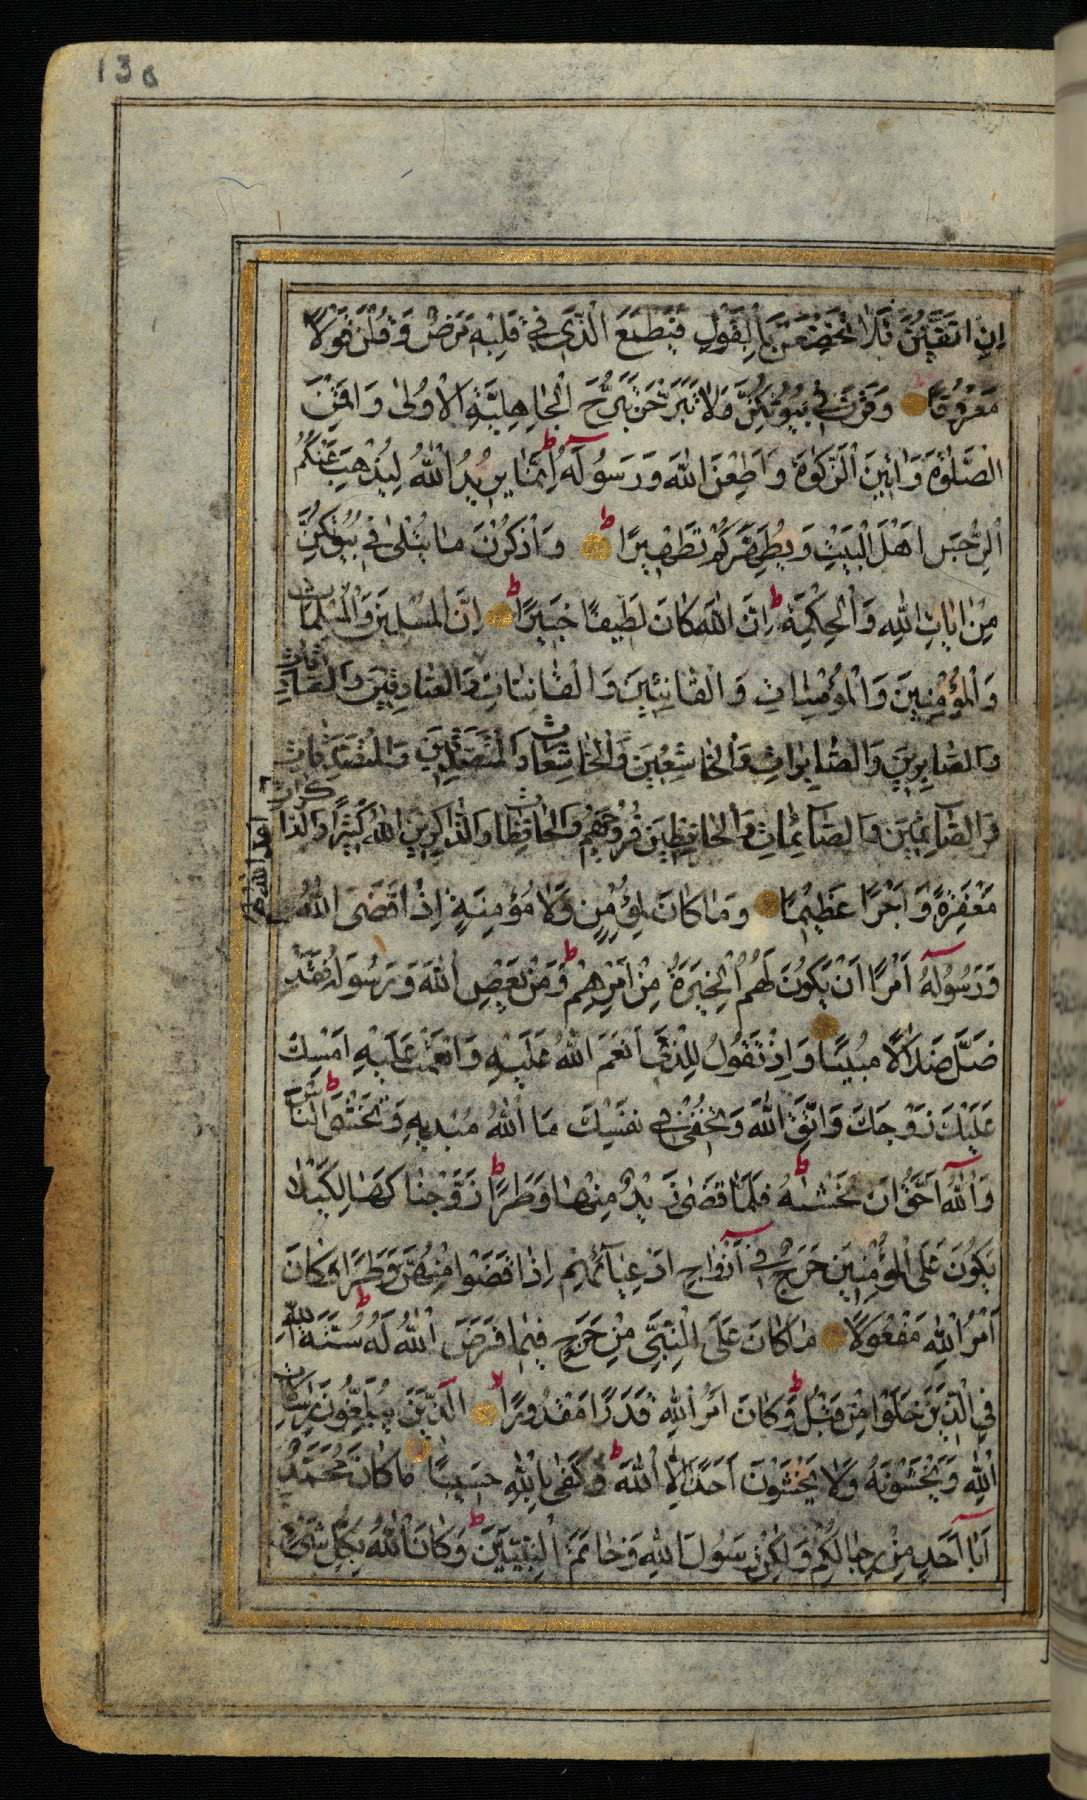 13a
اِنِ اتَّقَيْتُنَّ فَلَا تَخْضَعْنَ بِالْقَوْلِ فَيَطْمَعَ الَّذِي فِي قَلْبِهِ مَرَضٌ وَقُلْنَ قَوْلًا
مَعْرُوفًا وَقَرْنَ فِي بُيُوتِكُنَّ وَلَا تَبَرَّجْنَ تَبَرُّجَ الْجَاهِلِيَّةِ الْاُولٰى وَاَقِمْنَ
الصَّلٰوةَ وَاٰتِينَ الزَّكٰوةَ وَاَطِعْنَ اللّٰهَ وَرَسُولَهُ ط اِنَّمَا يُرِيدُ اللّٰهُ لِيُذْهِبَ عَنْكُمُ
الرِّجْسَ اَهْلَ الْبَيْتِ وَيُطَهِّرَكُمْ تَطْهِيرًا ط وَاذْكُرْنَ مَا يُتْلٰى فِي بُيُوتِكُنَّ
مِنْ اٰيَاتِ اللّٰهِ وَالْحِكْمَةِ ط اِنَّ اللّٰهَ كَانَ لَطِيفًا خَبِيرًا ط اِنَّ الْمُسْلِمِينَ وَالْمُسْلِمَاتِ
وَالْمُؤْمِنِينَ وَالْمُؤْمِنَاتِ وَالْقَانِتِينَ وَالْقَانِتَاتِ وَالصَّادِقِينَ وَالصَّادِقَاتِ
وَالصَّابِرِينَ وَالصَّابِرَاتِ وَالْخَاشِعِينَ وَالْخَاشِعَاتِ وَالْمُتَصَدِّقِينَ وَالْمُتَصَدِّقَاتِ
وَالصَّائِمِينَ وَالصَّائِمَاتِ وَالْحَافِظِينَ فُرُوجَهُمْ وَالْحَافِظَاتِ وَالذَّاكِرِينَ اللّٰهَ كَثِيرًا وَالذَّاكِرَاتِ
اَعَدَّ اللّٰهُ لَهُمْ
مَغْفِرَةً وَاَجْرًا عَظِيمًا وَمَا كَانَ لِمُؤْمِنٍ وَلَا مُؤْمِنَةٍ اِذَا قَضَى اللّٰهُ
وَرَسُولُهُ اَمْرًا اَنْ يَكُونَ لَهُمُ الْخِيَرَةُ مِنْ اَمْرِهِمْ ط وَمَنْ يَعْصِ اللّٰهَ وَرَسُولَهُ فَقَدْ
ضَلَّ ضَلَالًا مُبِينًا وَاِذْ تَقُولُ لِلَّذِي اَنْعَمَ اللّٰهُ عَلَيْهِ وَاَنْعَمْتَ عَلَيْهِ اَمْسِكْ
عَلَيْكَ زَوْجَكَ وَاتَّقِ اللّٰهَ وَتُخْفِي فِي نَفْسِكَ مَا اللّٰهُ مُبْدِيهِ وَتَخْشَى النَّاسَ ط
وَاللّٰهُ اَحَقُّ اَنْ تَخْشٰيهُ ط فَلَمَّا قَضٰى زَيْدٌ مِنْهَا وَطَرًا ط زَوَّجْنَاكَهَا لِكَيْلَا
يَكُونَ عَلَى الْمُؤْمِنِينَ حَرَجٌ فِي اَزْوَاجِ اَدْعِيَائِهِمْ اِذَا قَضَوْا مِنْهُنَّ وَطَرًا ط وَكَانَ
اَمْرُ اللّٰهِ مَفْعُولًا مَا كَانَ عَلَى النَّبِيِّ مِنْ حَرَجٍ فِيمَا فَرَضَ اللّٰهُ لَهُ ط سُنَّةَ اللّٰهِ
فِي الَّذِينَ خَلَوْا مِنْ قَبْلُ ط وَكَانَ اَمْرُ اللّٰهِ قَدَرًا مَقْدُورًا لا الَّذِينَ يُبَلِّغُونَ رِسَالَاتِ
اللّٰهِ وَيَخْشَوْنَهُ وَلَا يَخْشَوْنَ اَحَدًا اِلَّا اللّٰهَ ط وَكَفٰى بِاللّٰهِ حَسِيبًا مَا كَانَ مُحَمَّدٌ
اَبَا اَحَدٍ مِنْ رِجَالِكُمْ وَلٰكِنْ رَسُولَ اللّٰهِ وَخَاتَمَ النَّبِيِّينَ ط وَكَانَ اللّٰهُ بِكُلِّ شَيْءٍ